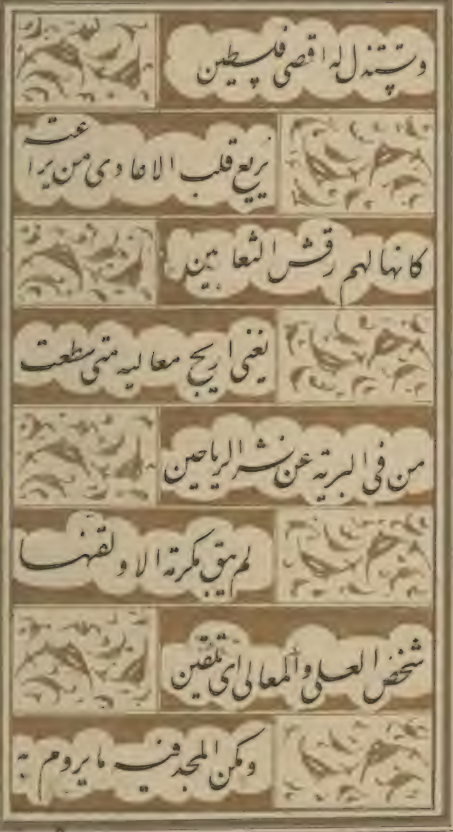 وتستذل له اقصى فلسطين
يريع قلب الاعادى من يراعته
كانها لهم رقش الثعابين
يغنى اريج معاليه متى سطعت
من فى البرية عن نشر الرياحين
لم يبق مكرمة الا ولقنها
شخص العلى والمعالى اى تلقين
ومكن المجد فيه ما يروم به